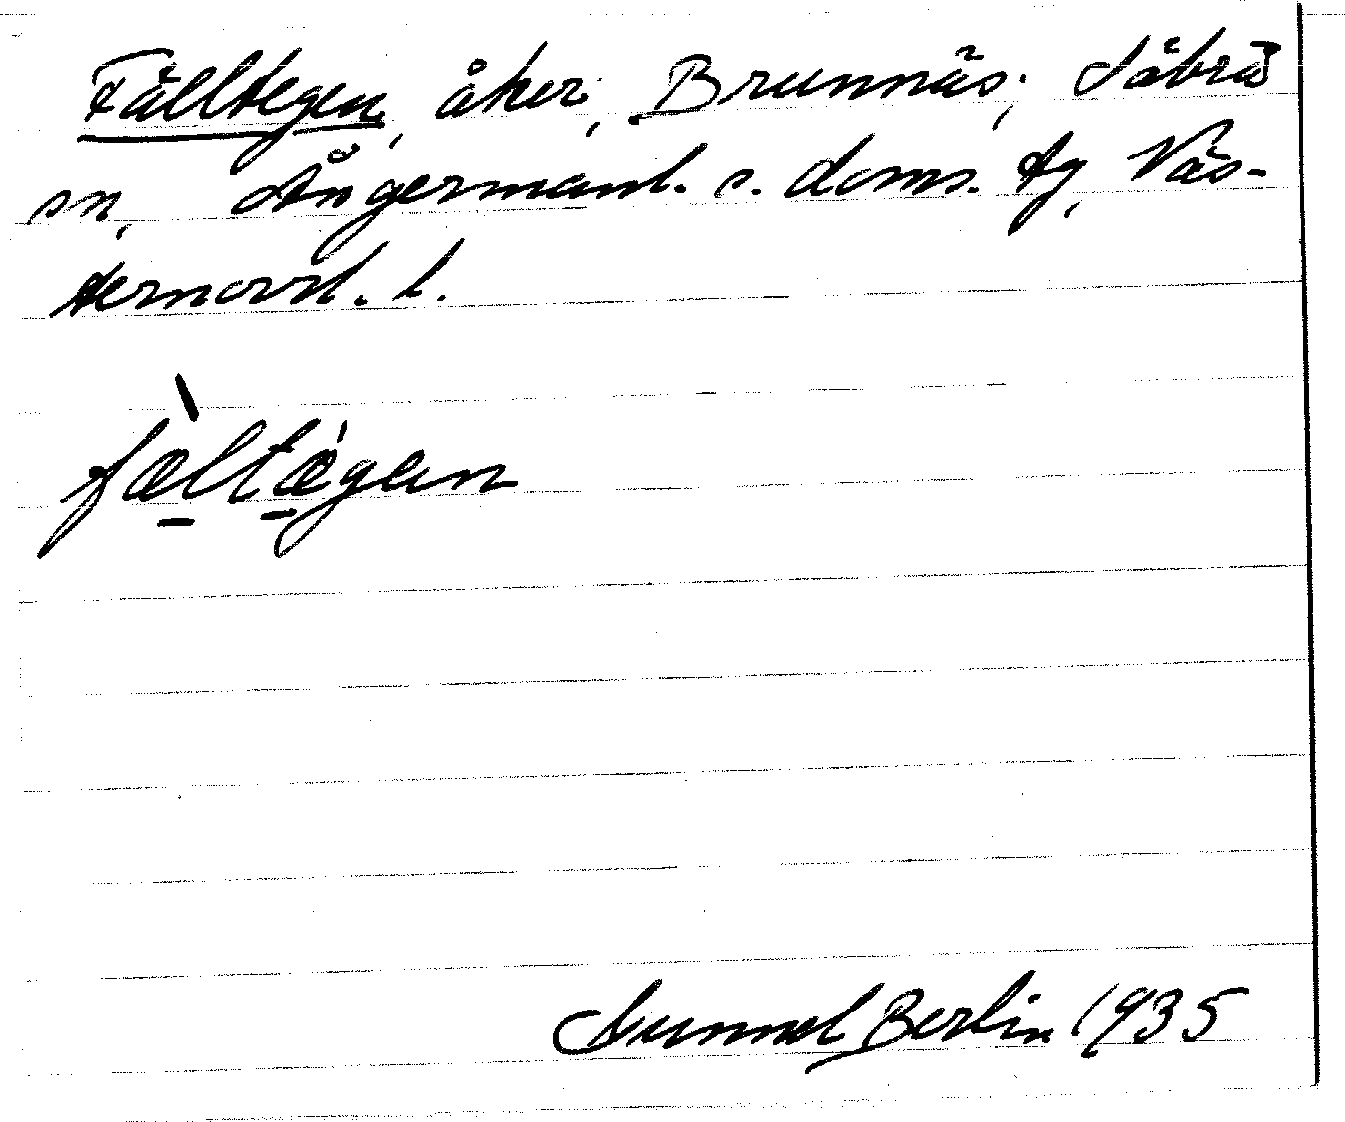 Fälltegen, åker, Brunnäs, Säbrå
sn, Ångermanl. s. doms. tg, Väs-
ternorrl. l.
fæltǽgen
Gunnel Berlin 1935